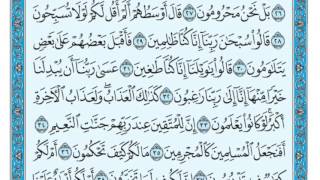 ٢٦ بَلْ نَحْنُ مَحْرُومُونَ ٢٧ قَالَ أَوْسَطُهُمْ أَلَمْ أَقُل لَّكُمْ لَوْلَا تُسَبِّحُونَ
٢٨ قَالُوا۟ سُبْحَٰنَ رَبِّنَآ إِنَّا كُنَّا ظَٰلِمِينَ ٢٩ فَأَقْبَلَ بَعْضُهُمْ عَلَىٰ بَعْضٍ
يَتَلَٰوَمُونَ ٣٠ قَالُوا۟ يَٰوَيْلَنَآ إِنَّا كُنَّا طَٰغِينَ ٣١ عَسَىٰ رَبُّنَآ أَن يُبْدِلَنَا
خَيْرًا مِّنْهَآ إِنَّآ إِلَىٰ رَبِّنَا رَٰغِبُونَ ٣٢ كَذَٰلِكَ ٱلْعَذَابُ ۖ وَلَعَذَابُ ٱلْـَٔاخِرَةِ
أَكْبَرُ ۚ لَوْ كَانُوا۟ يَعْلَمُونَ ٣٣ إِنَّ لِلْمُتَّقِينَ عِندَ رَبِّهِمْ جَنَّٰتِ ٱلنَّعِيمِ
٣٤ أَفَنَجْعَلُ ٱلْمُسْلِمِينَ كَٱلْمُجْرِمِينَ ٣٥ مَا لَكُمْ كَيْفَ تَحْكُمُونَ ٣٦ أَمْ لَكُمْ